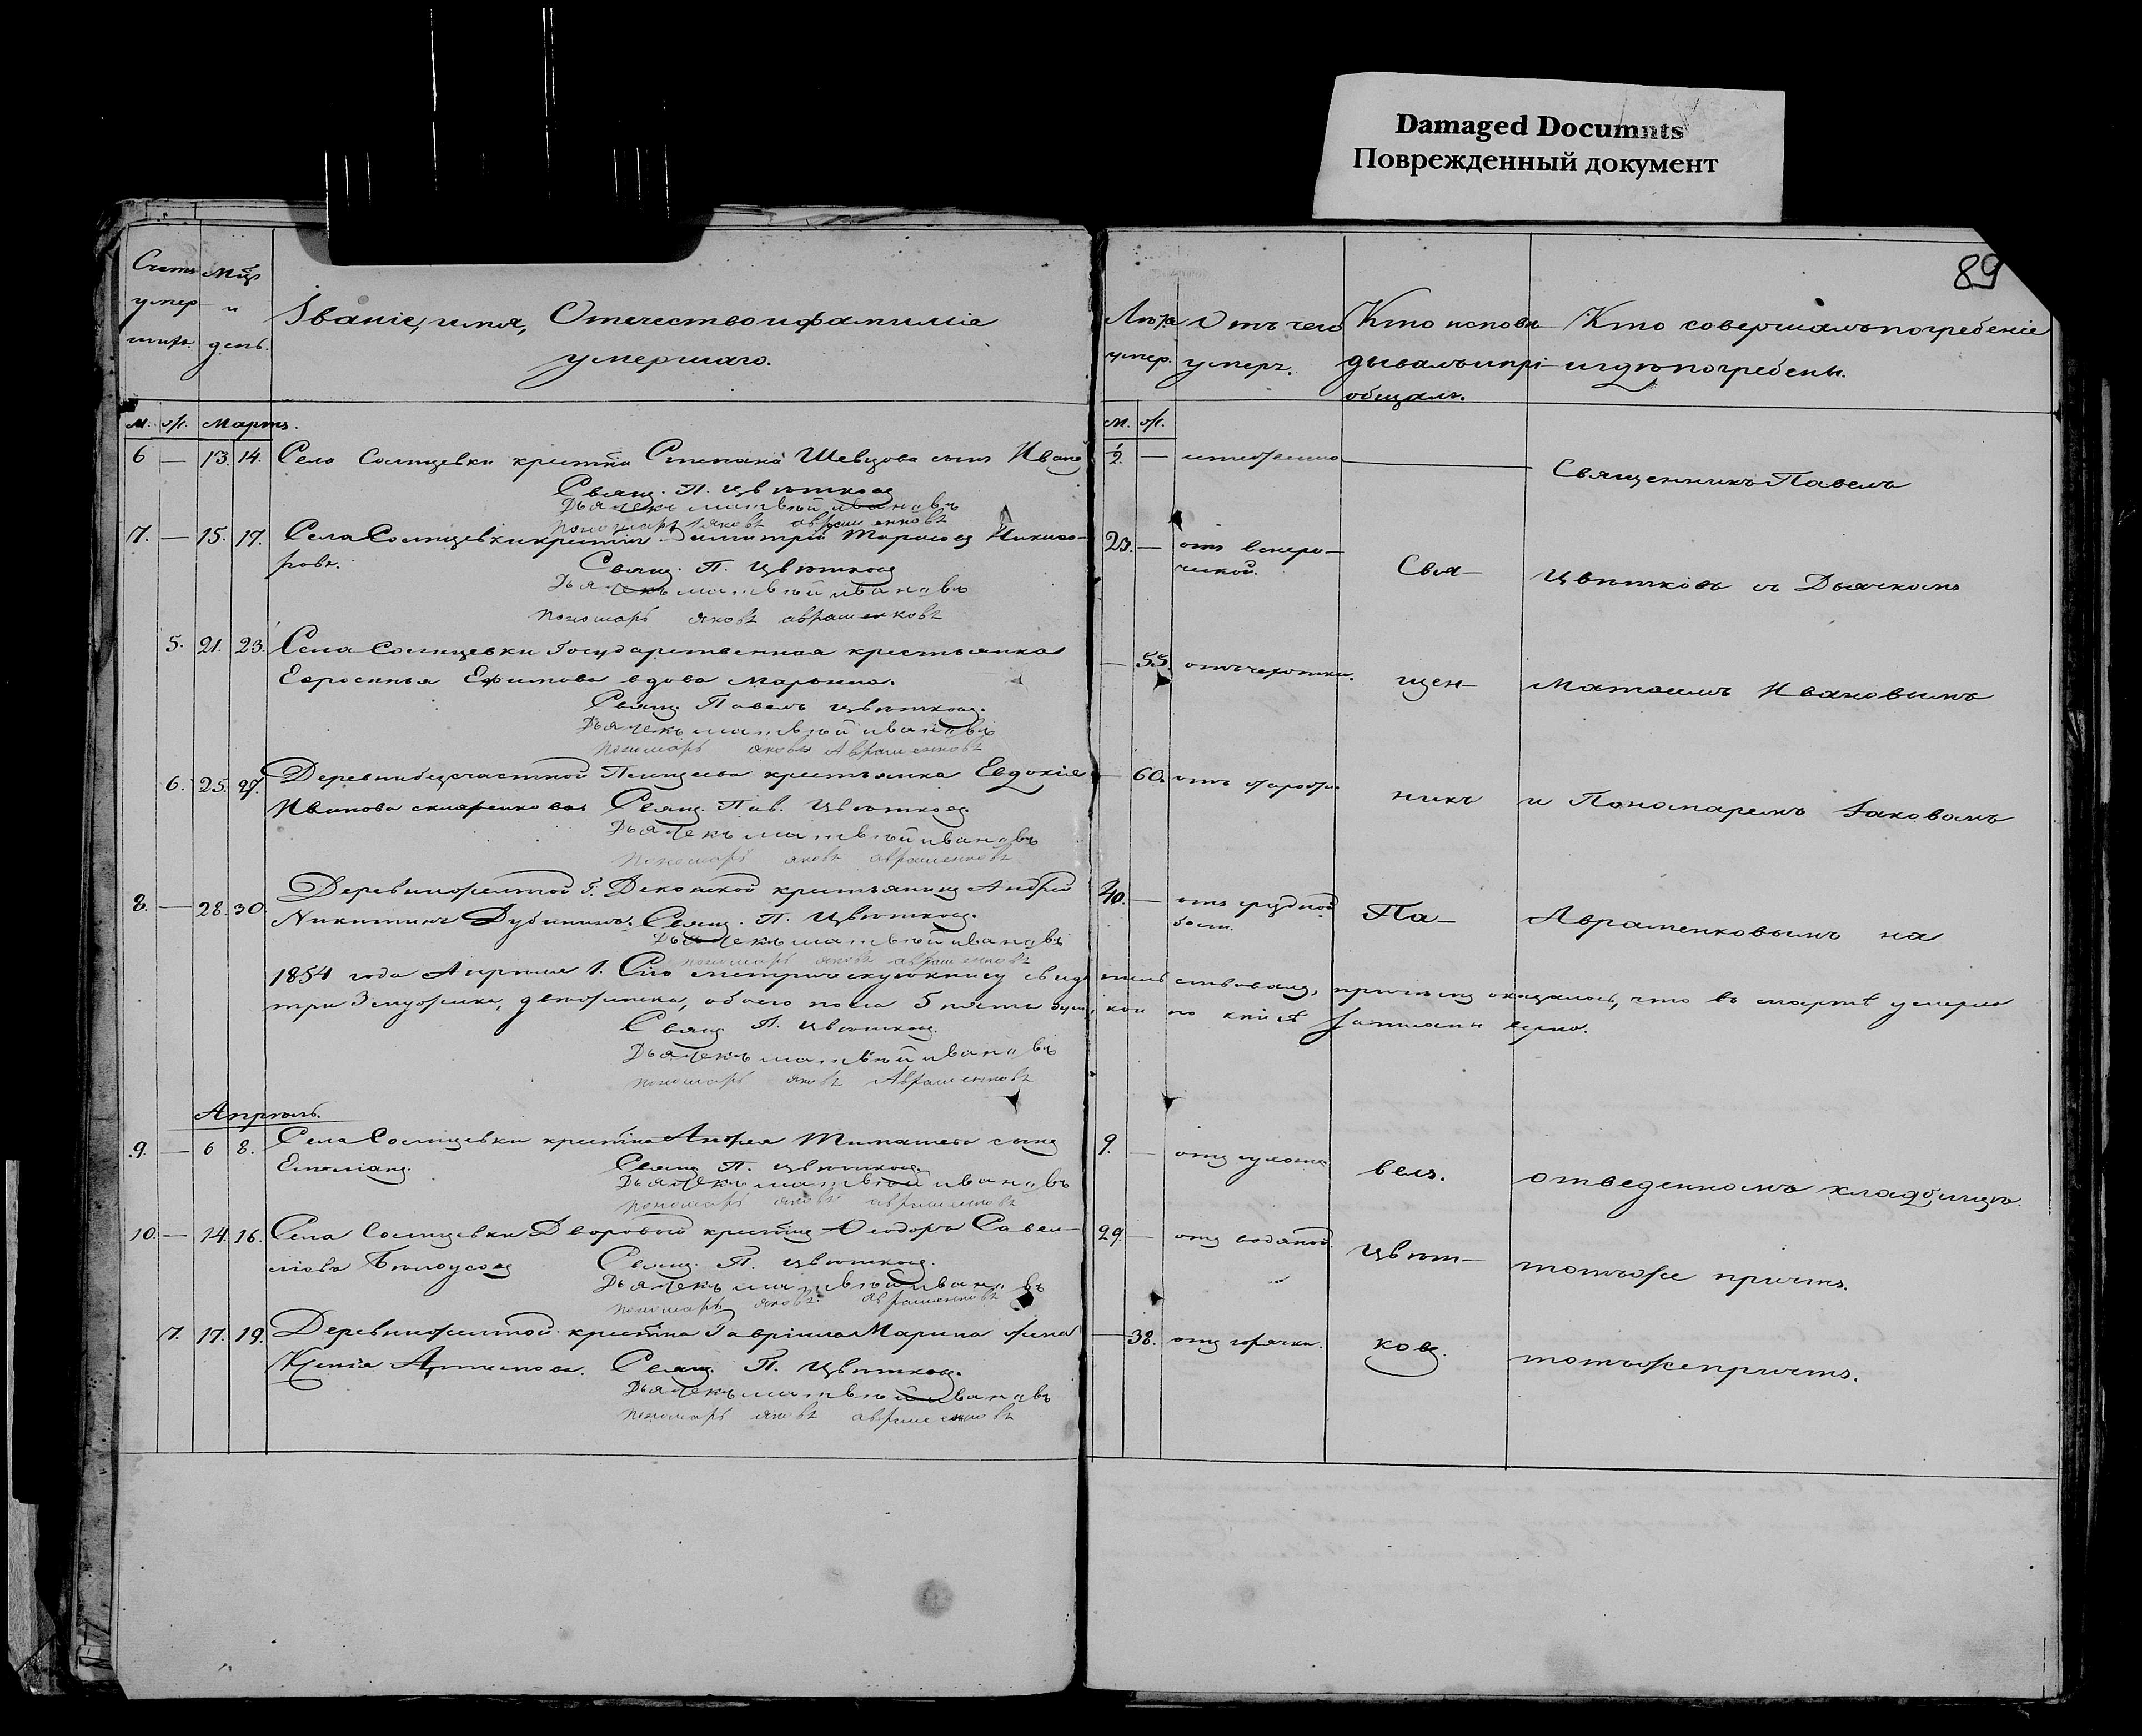 Damaged Documnts
Поврежденный документ
89
Счетъ умер шихъ.
Мцъ и день.
Званіе, имя, Отечество и фамилія
умершаго.
Лѣта умер.
Отъ чего умеръ.
Кто исповѣ-
дывалъ и прі-
общалъ.
Кто совершалъ погребеніе
и гдѣ погребены.
м. ж. Мартъ.
м. ж.
6 — 13. 14. Села Солнцевки крестна Степана Шевцова сынъ Иванъ
1/2. —
Свящ. П. Цвѣтковъ
Дьячекъ Матвѣй Ивановъ
пономарь Яковъ Авраменковъ
Священникъ Павелъ
7. — 15. 17. Села Солнцевки крестнъ Димитрій Тарасовъ
23. — отъ венери-
ческой.
Свящ. П. Цвѣтковъ
Дьячекъ Матвѣй Ивановъ
пономарь Яковъ Авраменковъ
Свя-
Цвѣтковъ съ Дьячкомъ
5. 21. 23. Села Солнцевки Государственная крестьянка
Евросинья Ефимова вдова
— 55. отъ чахотки.
Свящ. Павелъ Цвѣтковъ.
Дьячекъ Матвѣй Ивановъ
пономарь Яковъ Авраменковъ
щен-
Матвѣемъ Ивановымъ
6. 25. 27. Деревни Безчастной крестьянка Евдокія
Иванова Свящ. Пав. Цвѣтковъ
— 60. отъ старости
Дьячекъ Матвѣй Ивановъ
пономарь Яковъ Авраменковъ
никъ
и Пономаремъ Іаковомъ
8. — 28. 30. Деревни Желтой Г. Деконской крестьянинъ Андрей
Никитинъ Дубининъ. Свящ. П. Цвѣтковъ.
40. — отъ грудной
болѣз.
Дьячекъ Матвѣй Ивановъ
пономарь Яковъ Авраменковъ
Па-
Авраменковымъ на
1854 года Апрѣля 1. Сію метрическую книгу свидѣтельствовалъ, причемъ оказалось, что въ мартѣ умерло
три 3 мужеска, 2 женска, обоего пола 5 пять душъ, кои по книгѣ записаны вѣрно.
Свящ. П. Цвѣтковъ.
Дьячекъ Матвѣй Ивановъ
пономарь Яковъ Авраменковъ
Апрѣль.
9. — 6 8. Села Солнцевки крестна Андрея сынъ
Емеліанъ.
9. —
Свящ. П. Цвѣтковъ.
Дьячекъ Матвѣй Ивановъ
пономарь Яковъ Авраменковъ
велъ.
отведенномъ кладбищѣ.
10. — 14. 16. Села Солнцевки Дворовый крестнъ Ѳеодоръ Савел-
ліевъ Бѣлоусовъ Свящ. П. Цвѣтковъ.
29. — отъ водяной.
Дьячекъ Матвѣй Ивановъ
пономарь Яковъ Авраменковъ
Цвѣт-
тотъ же причтъ.
7. 17. 19. Деревни Желтой крестна Гавріила Марина жена
Ксенія Артемова. Свящ. П. Цвѣтковъ.
— 38. отъ горячки.
Дьячекъ Матвѣй Ивановъ
пономарь Яковъ Авраменковъ
ковъ.
тотъ же причтъ.